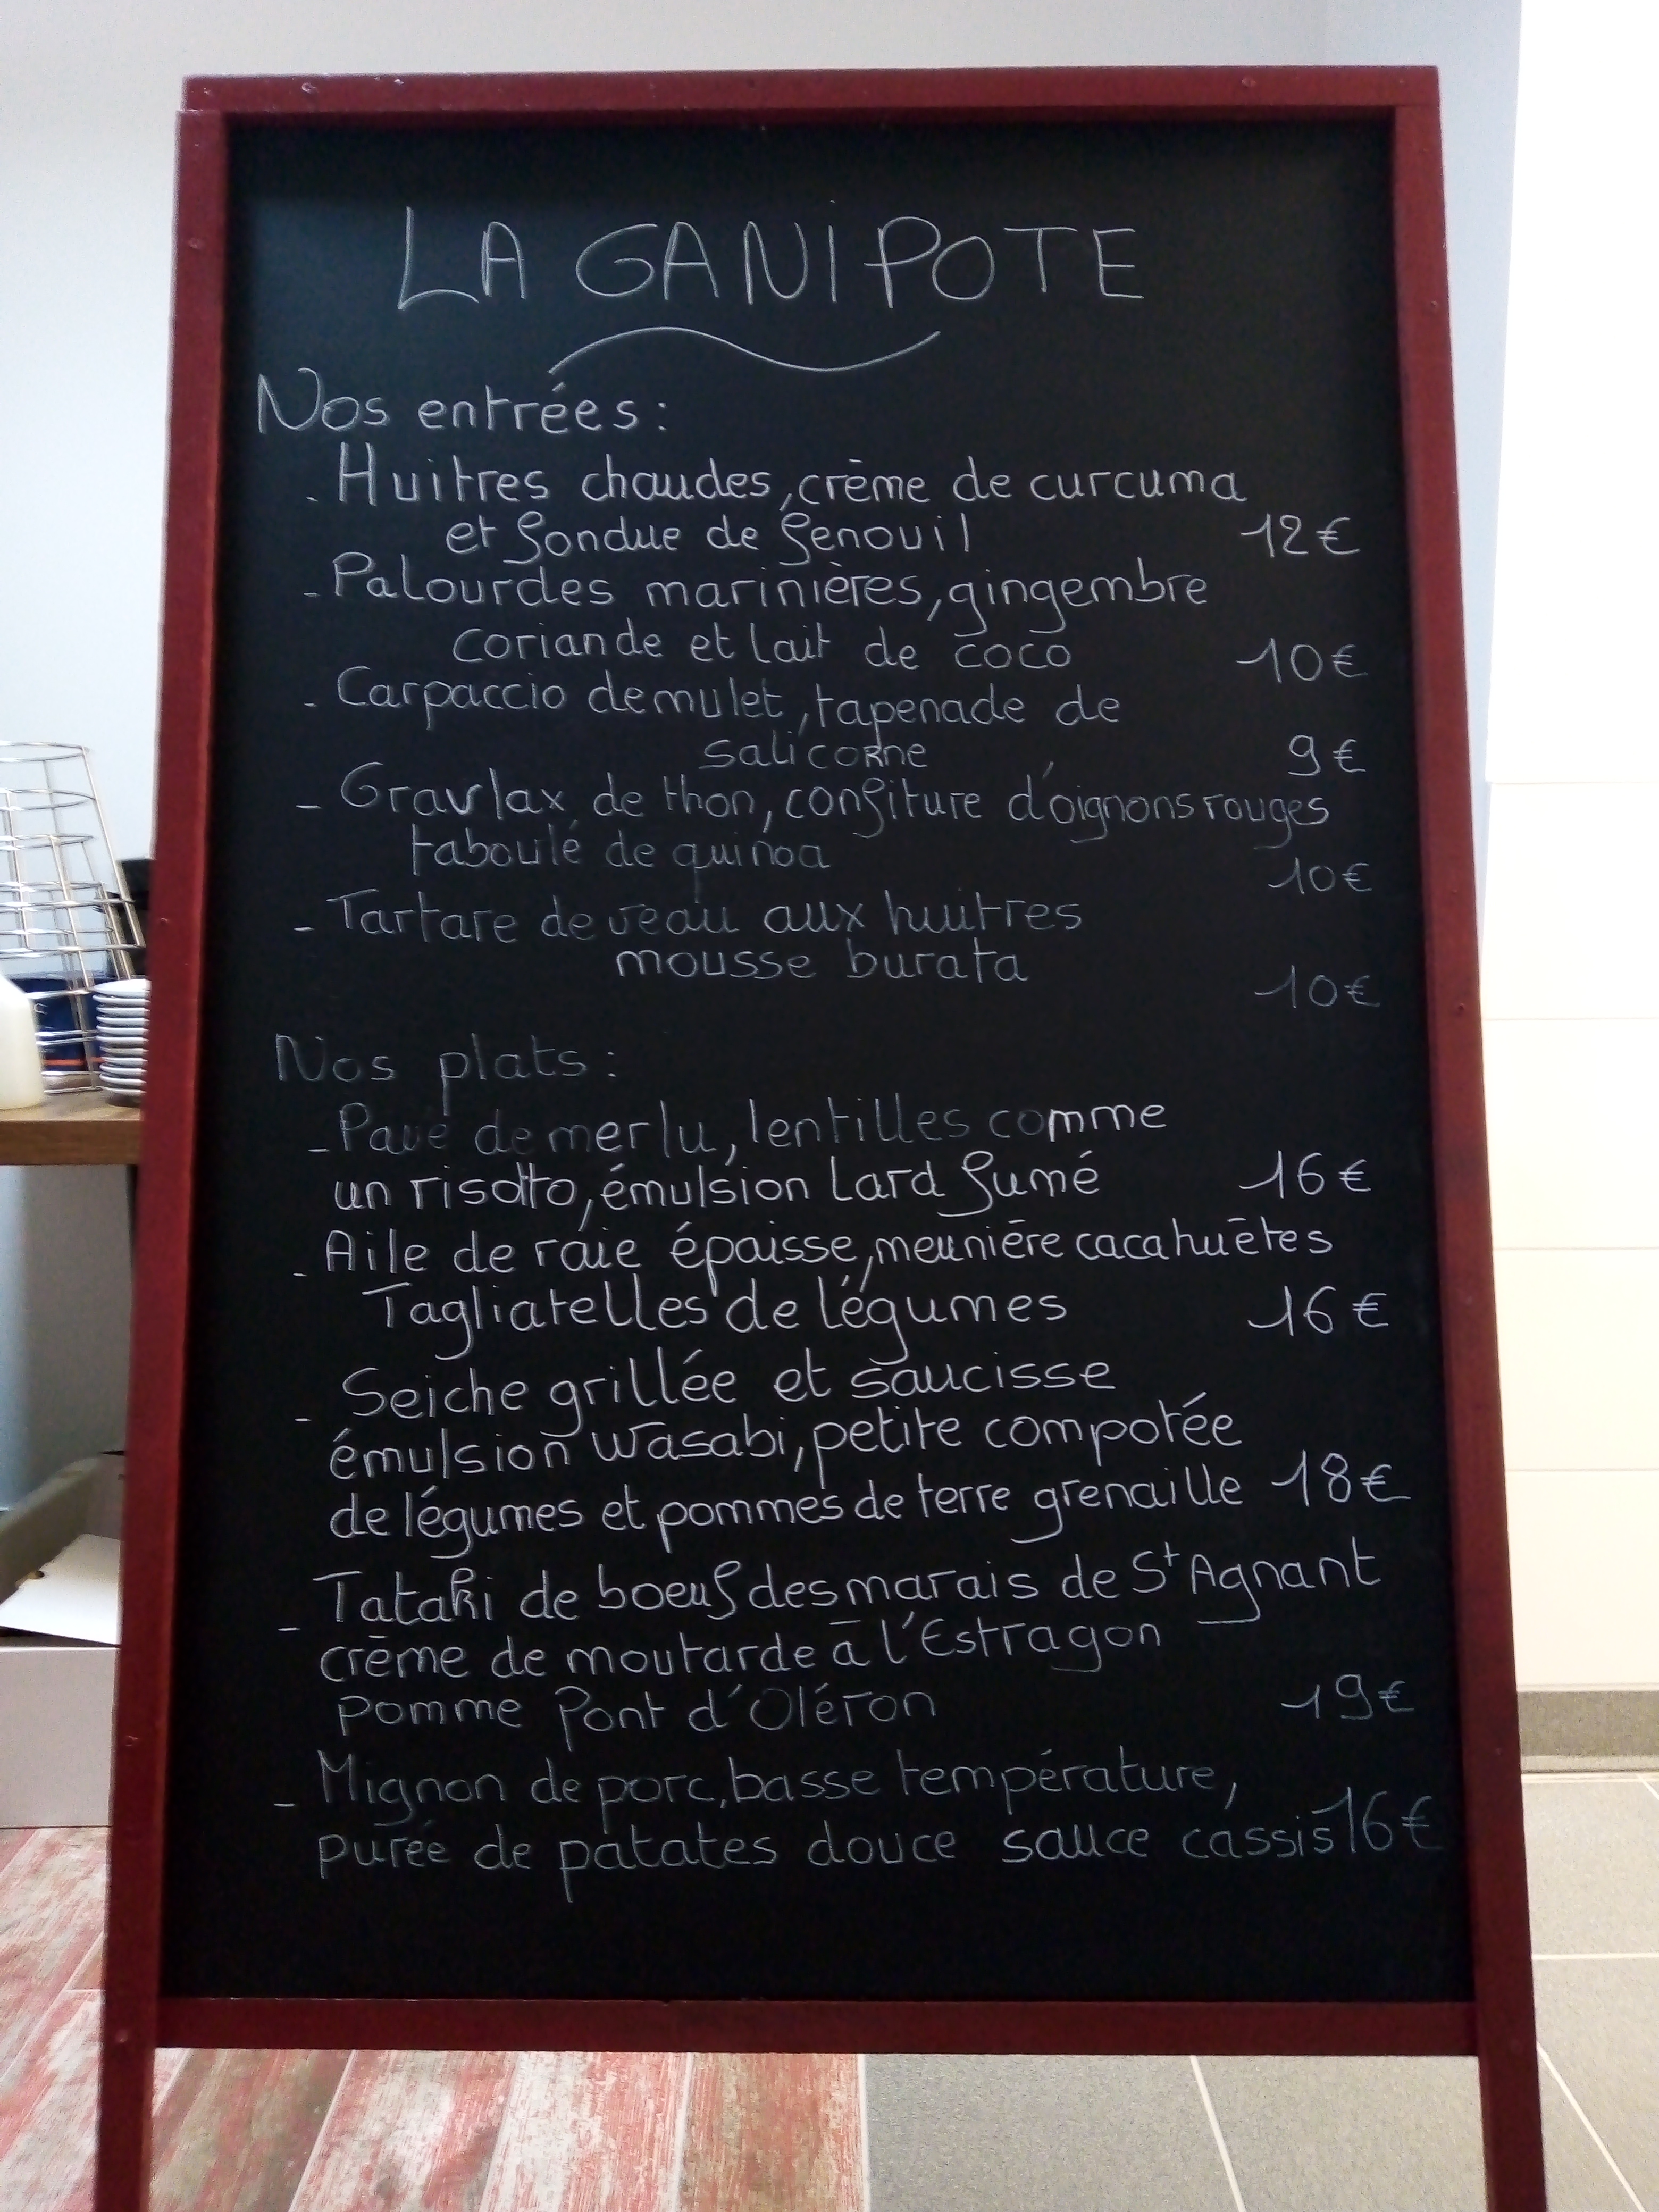 LA GANIPOTE
Nos entrées :
- Huitres chaudes, crème de curcuma
et fondue de fenouil 12€
- Palourdes marinières, gingembre
coriande et lait de coco 10€
- Carpaccio de mulet, tapenade de
salicorne 9€
- Gravlax de thon, confiture d'oignons rouges
taboulé de quinoa 10€
- Tartare de veau aux huitres
mousse burata 10€
Nos plats :
- Pavé de merlu, lentilles comme
un risotto, émulsion Lard fumé 16€
- Aile de raie épaisse, meunière cacahuètes
Tagliatelles de légumes 16€
- Seiche grillée et saucisse
émulsion wasabi, petite compotée
de légumes et pommes de terre grenaille 18€
- Tataki de boeuf des marais de St Agnant
crème de moutarde à l'Estragon
pomme Pont d'Oléron 19€
- Mignon de porc, basse température,
purée de patates douce sauce cassis 16€